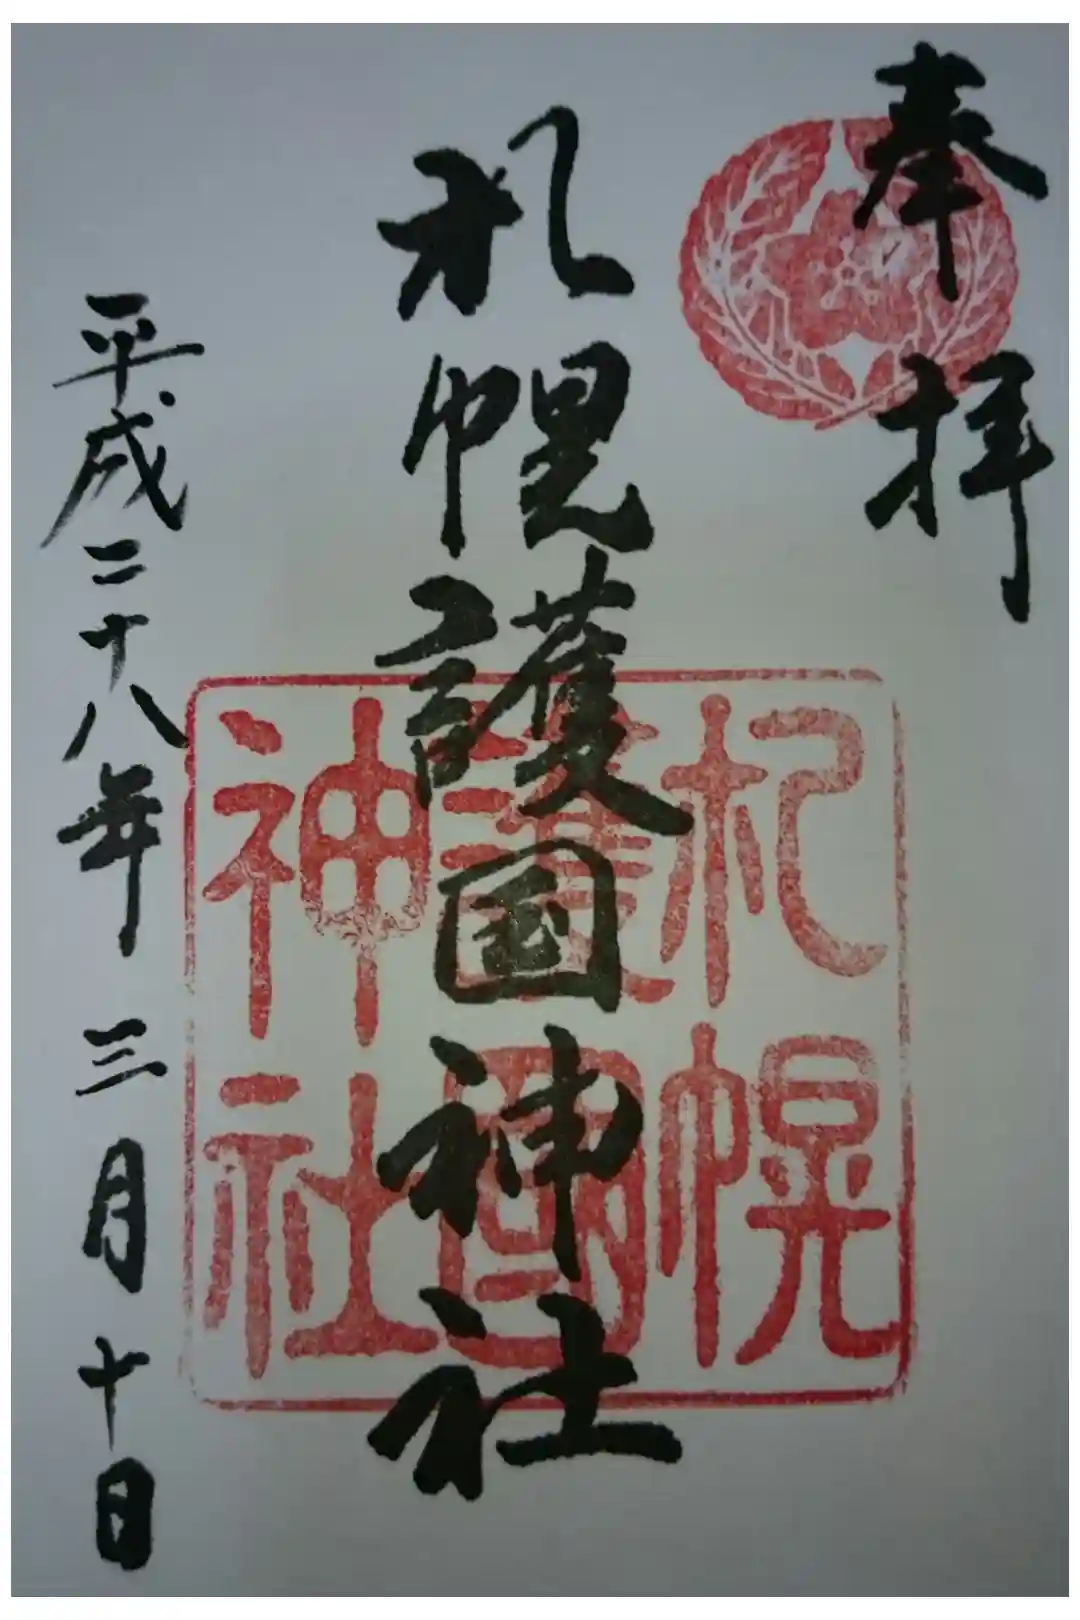 奉拝
札幌護国神社
平成二十八年三月十日
札幌
護國
神社